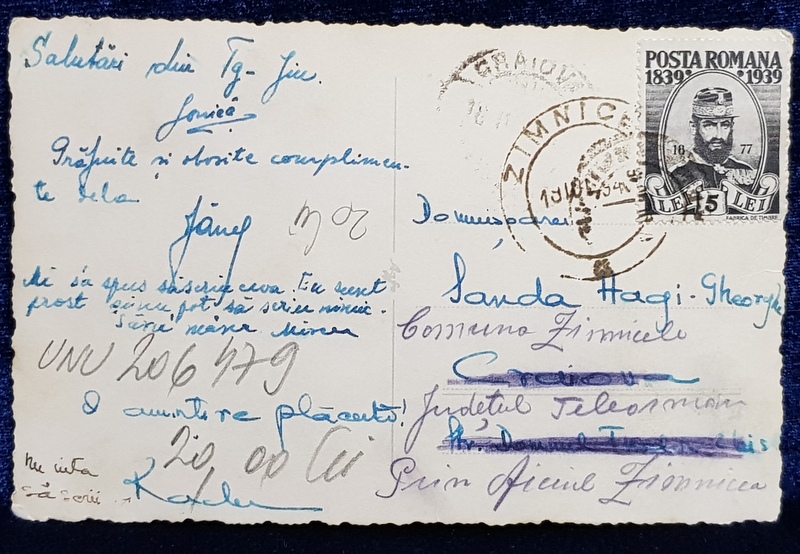 Salutări din Tg-Jiu.
Jonică
Grăbite și obosite complimen-
te dela
Jáng
20 lei
Mi să spus să scriu ceva. Eu sunt
prost și nu pot să scriu nimic.
Mircea
UNU 206479
O amintire plăcută!
20 00 lei
nu uita
să scrii
Radu
CRAIOVA
ZIMNICEA
POSTA ROMANA
1839 1939
18 77
LEI 15 LEI
FABRICA DE TIMBRE
Domnișoarei
Sanda Hagi-Gheorghe
Comuna Zimnicele
Craiova
Județul Teleorman
Str. Domnul
Prin Oficiul Zimnicea